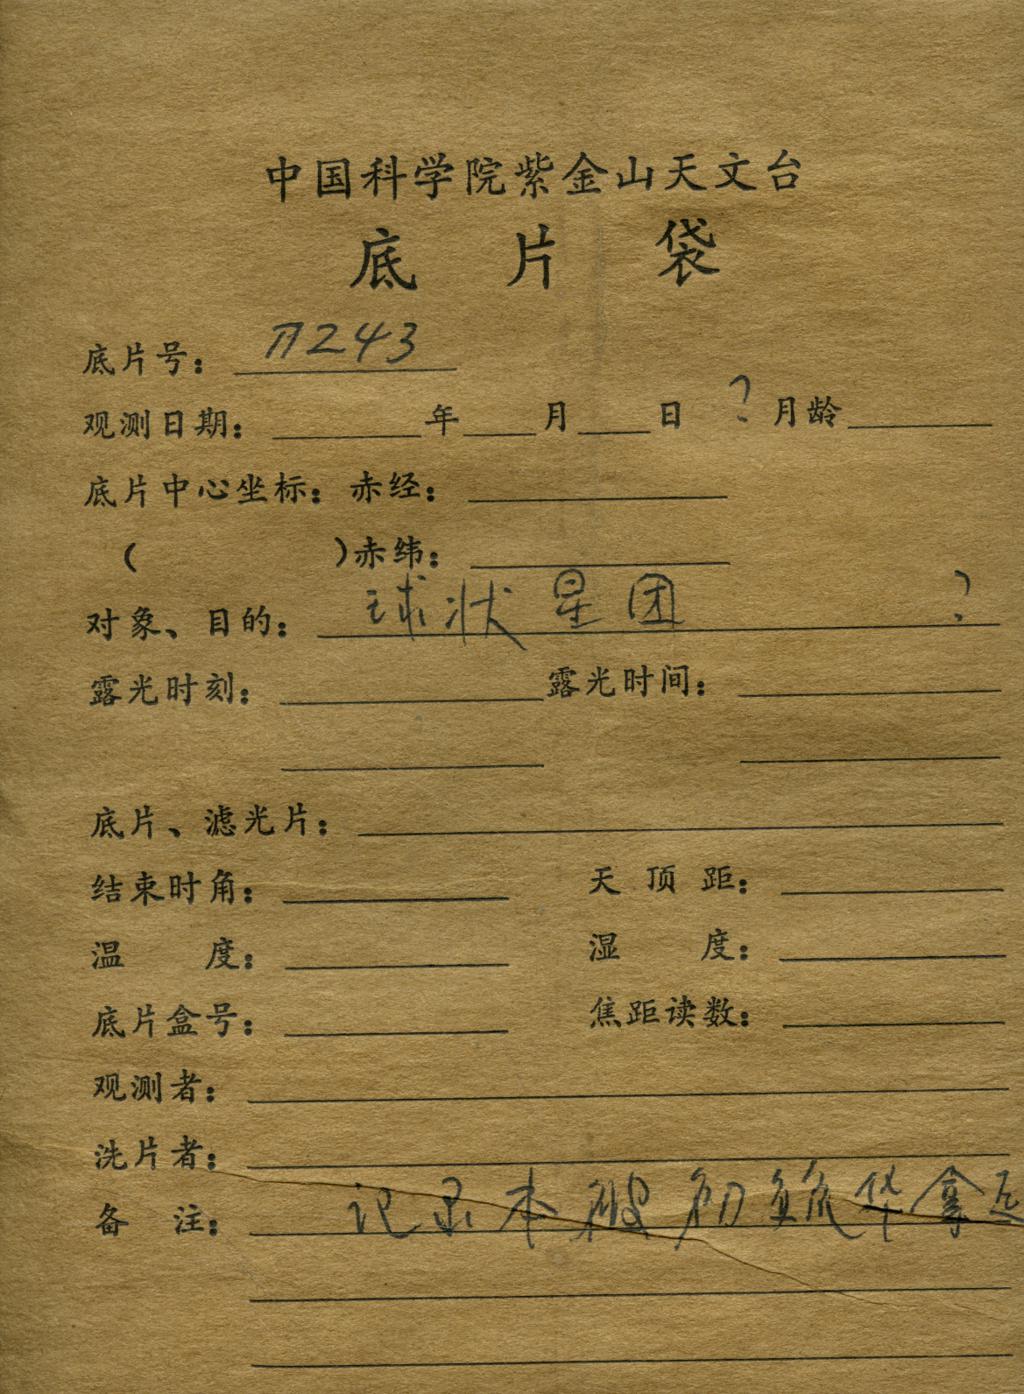 中国科学院紫金山天文台
底片袋
底片号： 243
观测日期： 年 月 日 ? 月龄
底片中心坐标：赤经：
( )赤纬：
对象、目的： 球状星团 ?
露光时刻： 露光时间：
底片、滤光片：
结束时角： 天顶距：
温度： 湿度：
底片盒号： 焦距读数：
观测者：
洗片者：
备注： 记录本被 华拿